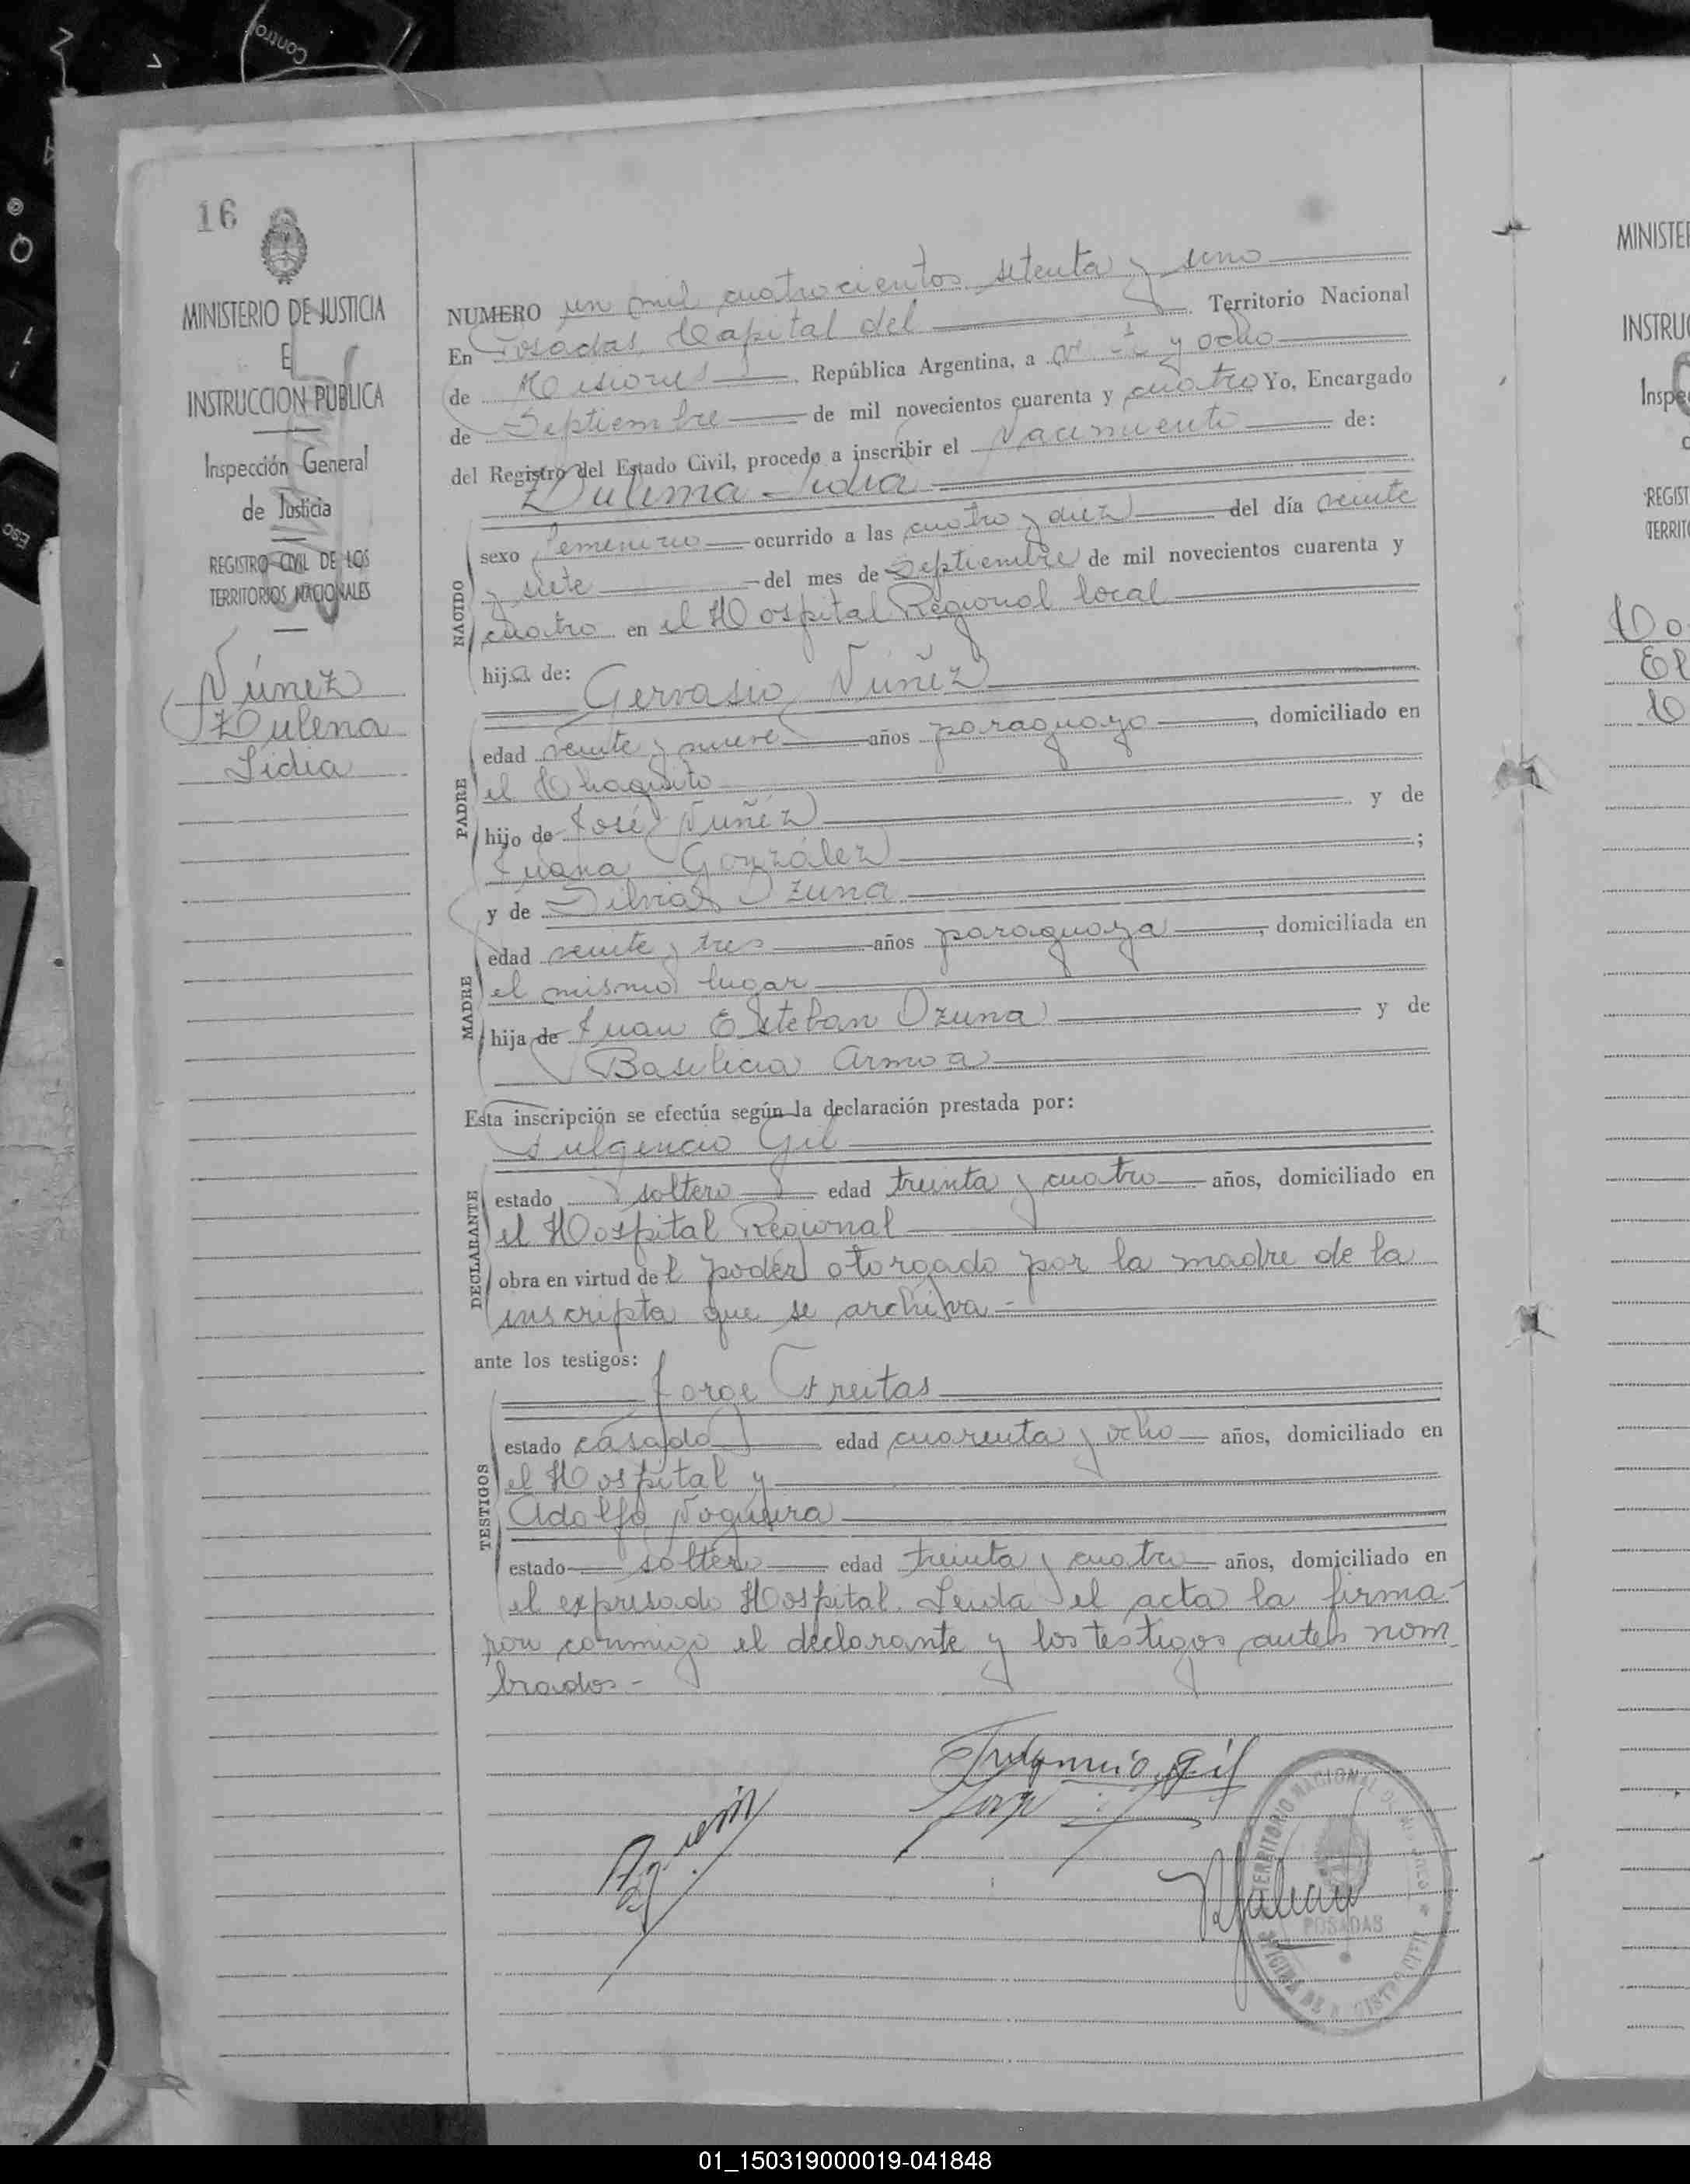 Control
esc
16
MINISTERIO DE JUSTICIA
E
INSTRUCCION PUBLICA
Inspección General
de Justicia
REGISTRO CIVIL DE LOS
TERRITORIOS NACIONALES
Núnez
Zulena
Lidia
NUMERO un mil cuatrocientos setenta y uno
En Posadas, Capital del Territorio Nacional
de Misiones, República Argentina, a y ocho
de Septiembre de mil novecientos cuarenta y cuatro Yo, Encargado
del Registro del Estado Civil, procedo a inscribir el Nacimiento de:
Zulema Lidia
NACIDO
sexo femenino ocurrido a las cuatro y diez del día veinte
y siete del mes de Septiembre de mil novecientos cuarenta y
cuatro en el Hospital Regional local
hija de:
Gervasio Núñez
PADRE
edad veinte y nueve años paraguayo, domiciliado en
el Chaquito
hijo de José Núñez y de
Juana González;
y de Silvia Ozuna
MADRE
edad veinte y tres años paraguaya, domiciliada en
el mismo lugar
hija de Juan Esteban Ozuna y de
Basilicia Armoa
Esta inscripción se efectúa según la declaración prestada por:
Fulgencio Gil
DECLARANTE
estado soltero edad treinta y cuatro años, domiciliado en
el Hospital Regional
obra en virtud del poder otorgado por la madre de la
inscripta que se archiva.-
ante los testigos:
Jorge Freitas
TESTIGOS
estado casado edad cuarenta y ocho años, domiciliado en
el Hospital y
Adolfo Noguera
estado soltero edad treinta y cuatro años, domiciliado en
el expresado Hospital. Leída el acta la firma-
ron conmigo el declarante y los testigos antes nom
brados.-
Fulgencio Gil
Jorge
TERRITORIO NACIONAL DE MISIONES
POSADAS
OFICINA DE REGISTRO CIVIL
MINISTE
INSTRU
Inspe
REGIST
TERRIT
01_150319000019-041848